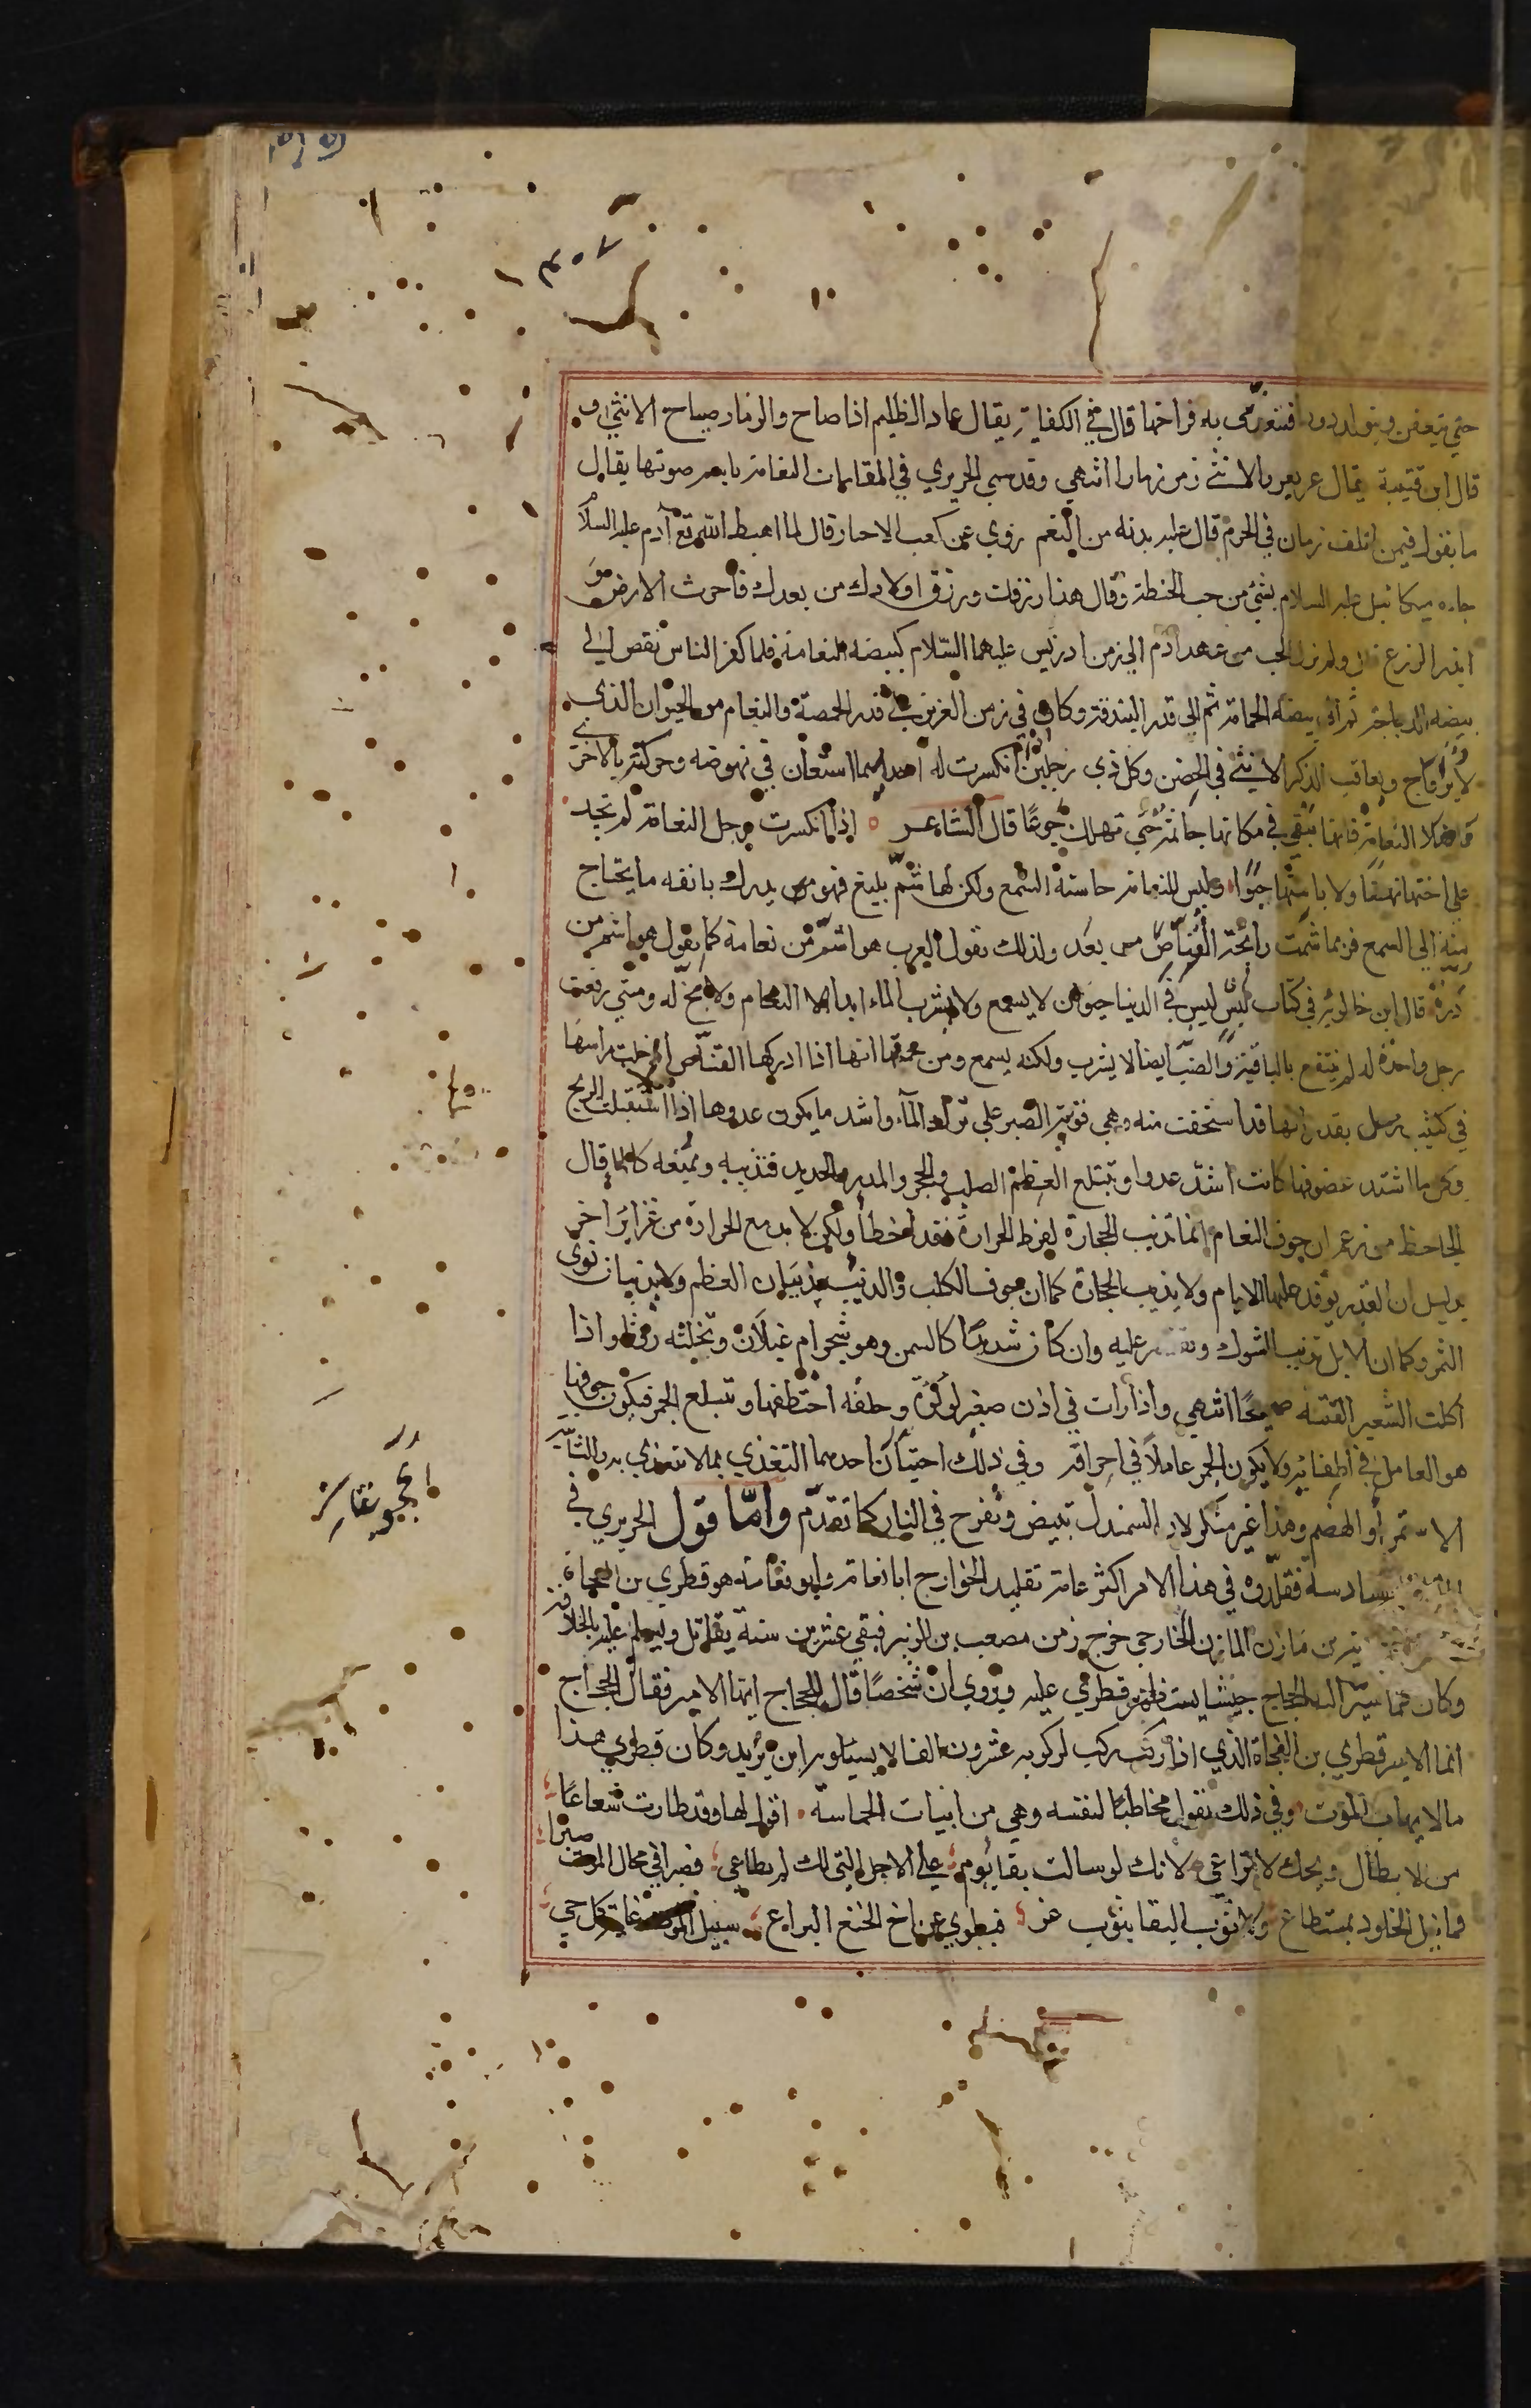 حتي يتعفن ويتولد دود فتغذي به فراخها قال في الكفاية يقال عاد الظليم اذا صاح والزمار صياح الانثي وقـ
قال ابن قتيبة يقال عر يعر والانثي زمر زمارا انتهي وقد سمي الحريري في المقامات النعامة باسم صوتها يقال
ما يقول فيمن اتلف زمان في الحرم قال عليه بدنه من النعم روي عن كعب الاحبار قال لما اهبط الله تع آدم عليه السلام
جاءه ميكائيل عليه السلام بشئ من حب الحنطة وقال هذا رزقك ورزق اولادك من بعدك فاحرث الارض و
ابذر الزرع قال ولم يزل الحب من عهد ادم الي زمن ادريس عليهما السلام كبيضة النعامة فلما كفر الناس نقص الي
بيضة الدجاجة ثم الي بيضة الحمامة ثم الي قدر البندقة وكان في زمن العزيز علي قدر الحمصة والنعام من الحيوان الذي
لا يزاوج ويعاقب الذكر الانثي في الحضن وكل ذي رجلين اذا انكسرت له احديهما استعان في نهوضه وحركته بالاخري
ما خلا النعامة فانها تبقي في مكانها جاثمة حتي تهلك جوعًا قال الشاعر اذا انكسرت رجل النعامة لم تجد
علي اختها نهضًا ولا باستها حبوًا وليس للنعامة حاسة السمع ولكن لها شمّ بليغ فهو يدرك بانفه ما يحتاج
فيه الي السمع فربما شمت رائحة القناص من بعد ولذلك تقول العرب هو اشمّ من نعامة كما يقول هو اشم من
ذرة قال ابن خالويه في كتاب ليس ليس في الدنيا حيوان لا يسمع ولا يشرب الماء ابدا الا النعام ولا مخ له ومتي رفعت
رجل واحدة له لم ينتفع بالباقية والضب ايضا لا يشرب ولكنه يسمع ومن حمقها انها اذا ادركها القناص ادخلت راسها
في كثيب رمل بقدر انها قد استخفت منه وهي قوية الصبر علي ترك الماء واشد ما يكون عدوها اذا استقبلت الريح
وكل ما اشتد عضوفها كانت اشد عدوا وتبتلع العظم الصلب والحجر والمدر والحديد فتذيبه وتميعه كالماء قال
الجاحظ من زعم ان جوف النعام انما تذيب الحجارة لفرط الحرارة فقد اخطأ ولكن لا بد مع الحرارة من غرائز اخر
بدليل ان القدر يوقد عليها الايام ولا يذيب الحجارة كما ان جوف الكلب والذئب يذيبان العظم ولا يذيبان نوي
التمر وكما ان الابل تذيب الشوك وتقتصر عليه وان كان شديدًا كالسمر وهو شجر ام غيلان وتخلته روثا واذا
اكلت الشعير القته صحيحًا انتهي واذا رات في اذن صغير لؤلؤة وحلقه اختطفها وتبتلع الجمر فيكون جوفها
هو العامل في اطفائه ولا يكون الجمر عاملًا في احراقه وفي ذلك احتيان احدهما التغذي بما لا تغذي به والثانية
الاستمراء والهضم وهذا غير منكر لان السمندل تبيض وتفرخ في النار كما تقدّم وامّا قول الحريري في
السادسة فقلدوه في هذا الامر اكثر عامة تقليد الخوارج ابا نعامة وابو نعامة هو قطري بن الفجاءة
بن مازن المازني الخارجي خرج زمن مصعب بن الزبير فبقي عشرين سنة يقاتل ويسلم عليه بالخلافة
وكان كلما سيّر اليه الحجاج جيشا يستظهر قطري عليه وروي ان شخصًا قال للحجاج ايها الامير فقال الحجاج
انما الامير قطري بن الفجاة الذي اذا ركب ركب لركوبه عشرون الفا لا يسئلون اين يريد وكان قطري هذا
مالا يهاب الموت وفي ذلك يقول مخاطبًا لنفسه وهي من ابيات الحماسة اقول لها وقد طارت شعاعًا
من لابطال ويحك لا تراعي لانك لو سالت بقا يوم علي الاجل التي لك لم تطاعي فصبرا في مجال الموت صبرا
فما نيل الخلود بمستطاع ولا ثوب البقا بثوب عز فيطوي عن اخ الخنع اليراع سبيل الموت غاية كل حي